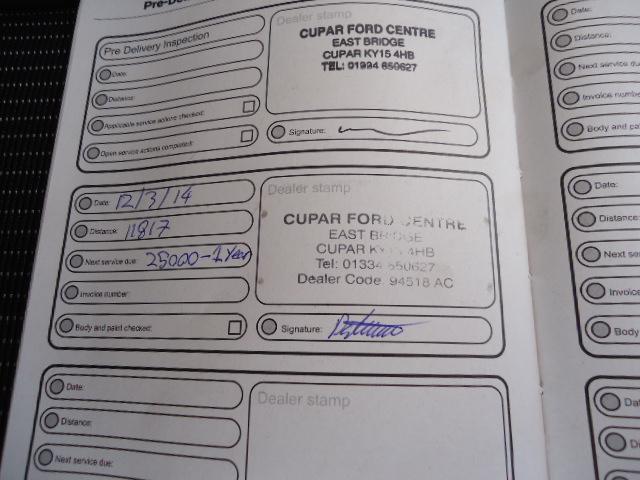 Pre-De
Pre Delivery Inspection
Date:
Distance:
Applicable service actions checked:
Open service actions completed:
Dealer stamp
CUPAR FORD CENTRE
EAST BRIDGE
CUPAR KY15 4HB
TEL: 01334 650627
Signature:
Date: 12/3/14
Distance: 11817
Next service due: 25000-1 Year
Invoice number:
Body and paint checked:
Dealer stamp
CUPAR FORD CENTRE
EAST BRIDGE
CUPAR KY15 4HB
Tel: 01334 650627
Dealer Code 94518 AC
Signature:
Date:
Distance:
Next service due:
Dealer stamp
Date:
Distance:
Next service du
Invoice numbe
Body and pai
Date:
Distance:
Next se
Invoice
Body
Dat
Di